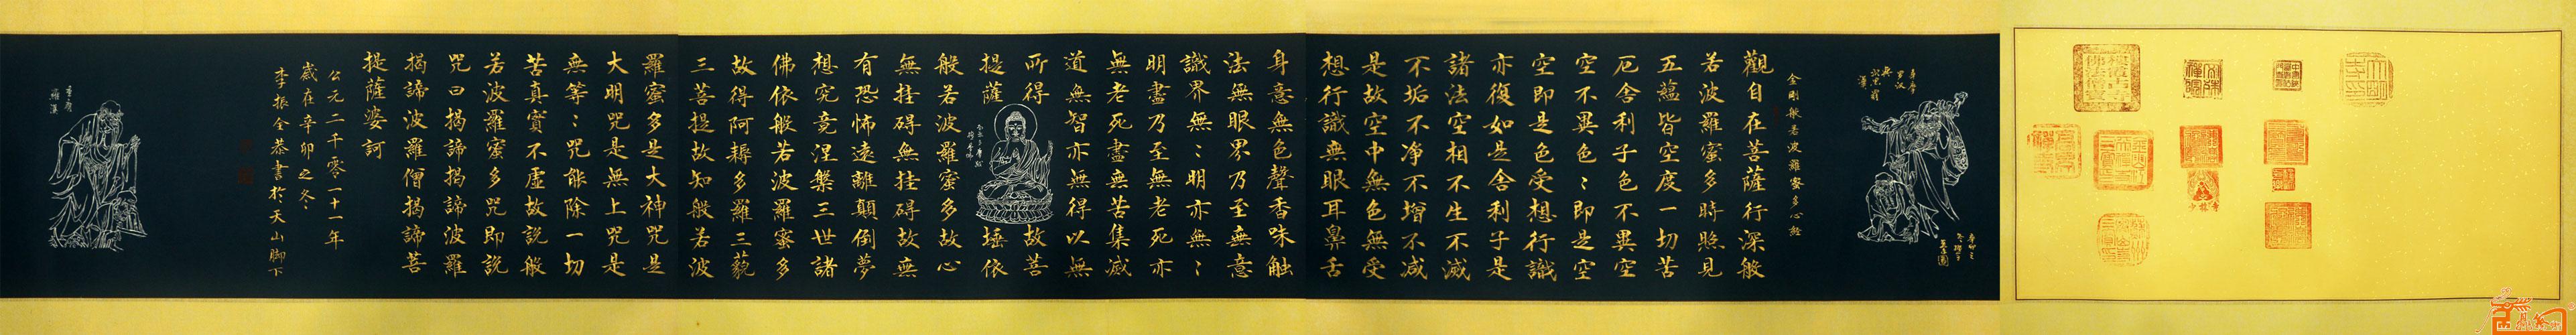 金剛般若波羅蜜多心經
觀自在菩薩行深般
若波羅蜜多時照見
五蘊皆空度一切苦
厄舍利子色不異空
空不異色〻即是空
空即是色受想行識
亦復如是舍利子是
諸法空相不生不滅
不垢不净不增不减
是故空中無色無受
想行識無眼耳鼻舌
身意無色聲香味触
法無眼界乃至無意
識界無〻明亦無〻
明盡乃至無老死亦
無老死盡無苦集滅
道無智亦無得以無
所得故菩
提薩埵依
般若波羅蜜多故心
無挂碍無挂碍故無
有恐怖遠離顛倒夢
想究竟涅槃三世諸
佛依般若波羅蜜多
故得阿耨多羅三藐
三菩提故知般若波
羅蜜多是大神咒是
大明咒是無上咒是
無等〻咒能除一切
苦真實不虛故説般
若波羅蜜多咒即説
咒曰揭諦揭諦波羅
揭諦波羅僧揭諦菩
提薩婆訶
公元二千零一十一年
歲在辛卯之冬〻
李振全恭書於天山脚下
少林寺